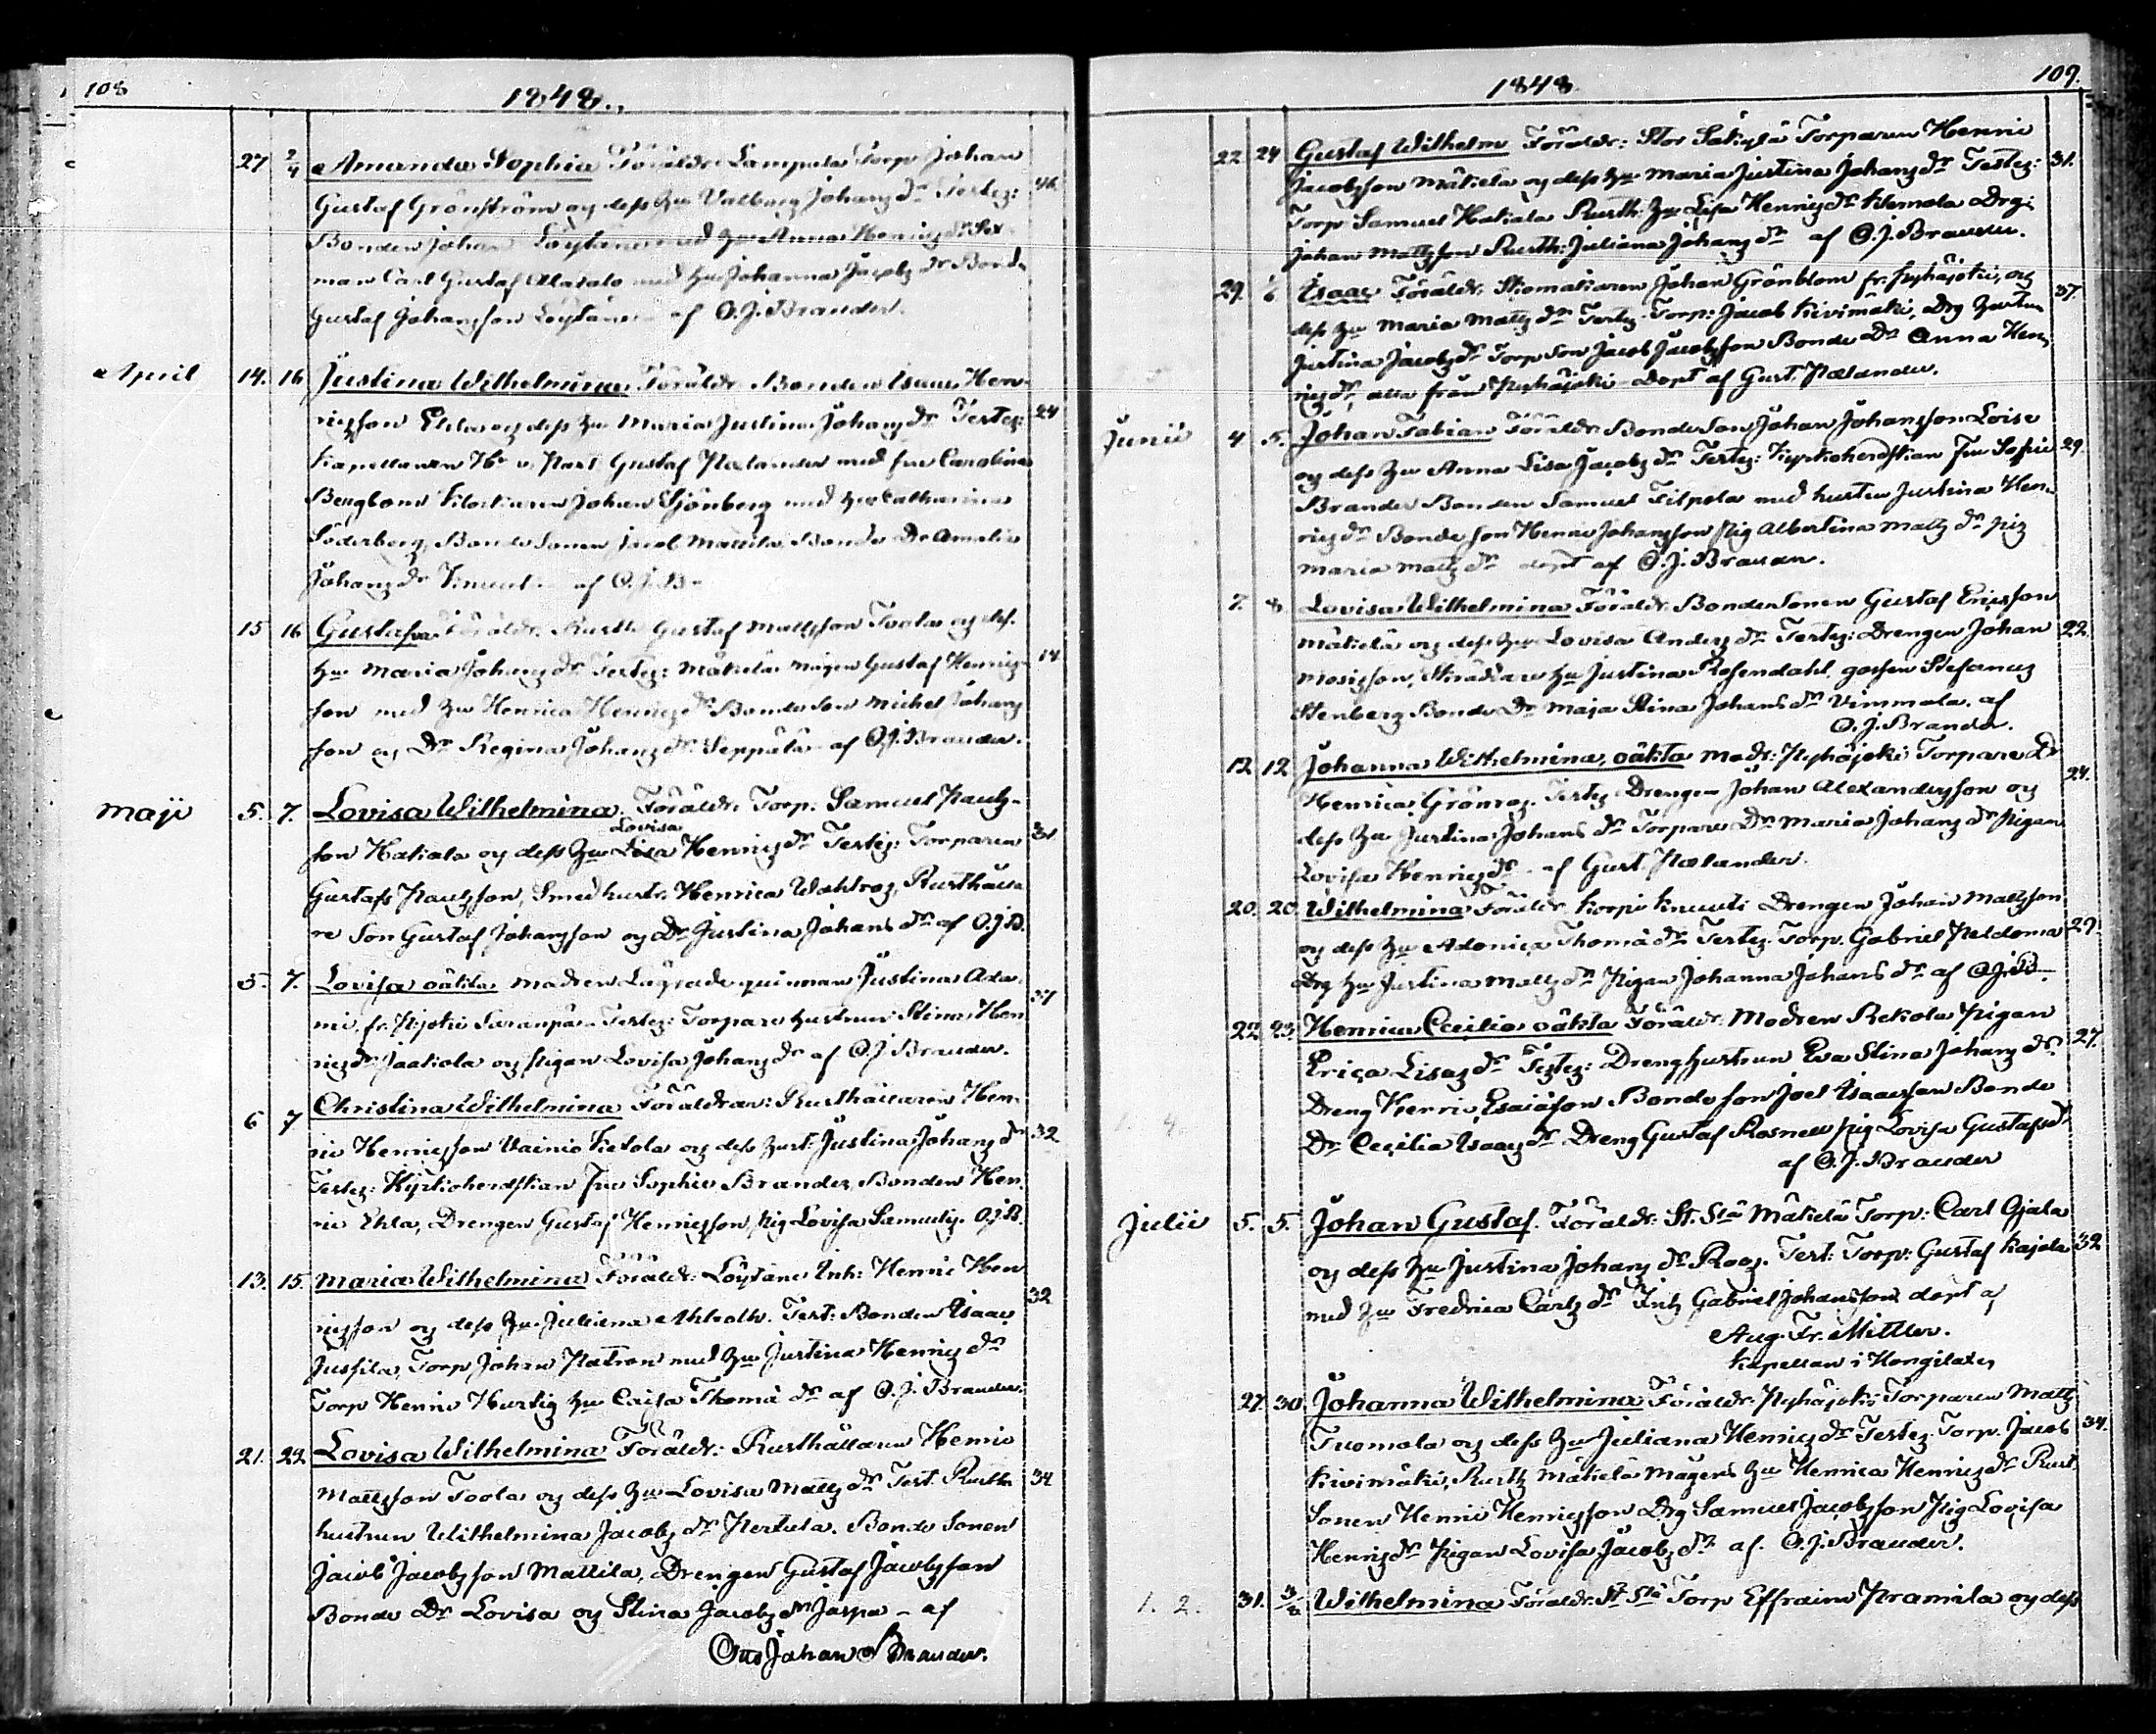 108
1848.
27 2/4 Amanda Sophia Föräldr: Lampala Torp Johan
Gustaf Grönström og dess Hu Valborg Johansdr Testes: 46
Bonden Johan Löytäne med Hu Anna Henricsdr Sex-
man Carl Gustaf Alatalo med Hu Johanna Jacobsdr Bond.
Gustaf Johansson Löytäne af O. J. Brander.
April 14. 16 Justina Wilhelmina Föräldr. Bonden Isaac Hen-
ricsson Ehla og dess Hu Maria Justina Johansdr Testes: 24
Kapellanen Hr v. Past. Gustaf Palander med fru Carolina
Bergbom Klockaren Johan Sjönberg med Hu Catharina
Söderberg, Bonde Sonen Jacob Mattila Bonde Dr Amalia
Johansdr af O. J. B-
15 16 Gustafva Föräldr. Rusth. Gustaf Mattsson Toola og dess
Hu Maria Johansdr Testes: Mäkelä mågen Gustaf Henrics-
son med Hu Henrica Henricsdr Bonde Son Michel Johans
son og Dr Regina Johansdr Seppälä af O. J. Brander.
Maji 5. 7. Lovisa Wilhelmina Föräldr. Torp. Samuel Pauls-
Lovisa
son Hakala og dess Hu Lisa Henricsdr Testes: Torparen 31
Gustaf Paulsson, Smedhustr. Henrica Wahlroos, Rusthålla
re Son Gustaf Johansson og Dr Justina Johansdr af O. J. B.
5. 7. Lovisa oäkta modren Lägrade quinnan Justina Ada-
mi fr. Testes: Torpare hustrun Stina Hen 37
ricsdr Jaakola og pigan Lovisa Johansdr af O. J. Brander.
6 7 Christina Wilhelmina Föräldrar: Rusthållaren Hen-
ric Henricsson Vainio Ketola og dess hust: Justina Johansdr 32
Testes: Kyrkoherdskan Fru Sophie Brander, Bonden Hen.
ric Ehla, Drengen Gustaf Henricsson, pig Lovisa Samuels. O. J. B.
13. 15. Maria Wilhelmina Föräldr: Löytäne Inh: Henric Hen
ricsson og dess Hu Juliana Ahlroth. Test: Bonden Isaac 32
Jussila, Torp Johan Patron med Hu Justina Henricsdr
Torp Henric Hurtig Hu Caisa Thomädr af O. J. Brander.
21. 22. Lovisa Wilhelmina Föräldr: Rusthållaren Henric
Mattsson Toola og dess Hu Lovisa Mattsdr Test. Rusth 34
hustrun Wilhelmina Jacobsdr Pertula. Bonde Sonen
Jacob Jacobsson Mattila, Drengen Gustaf Jacobsson
Bonde Dr Lovisa og Stina Jacobsdr Jaspa - af
Otto Johan Brander.
109.
1848
22 24 Gustaf Wilhelm Föräldr: Stor Säkylä Torparen Henric
Jacobsson Mäkelä og dess Hu Maria Justina Johansdr Testes: 31.
Torp Samuel Hakala Rusth. Hu Lisa Henricsdr Kemola Drg:
Johan Mattsson Rusth: Juliana Johansdr af O. J. Brander.
29. Isaac Föräldr. Skomakaren Johan Grönblom fr. Pyhäjoki, og 37.
dess Hu Maria Mattsdr Testes Torp: Jacob Kivimäki, Drg hustrun
Justina Jacobsdr Torp Son Jacob Jacobsson Bonde Dr Anna Hen-
ricsdr, alla från Pyhäjoki - Döpt af Gust. Palander.
Junii 4 5. Johan Fabian Föräldr. Bonde Son Johan Johansson Loise
og dess Hu Anna Lisa Jacobsdr Testes: Kyrkoherdskan Fru Sofie 29.
Brander Bonden Samuel Filpola med hustru Justina Hen-
ricsdr Bonde son Henric Johansson Pig Albertina Mattsdr pig
Maria Mattsdr döpt af O. J. Brander.
7. 8. Lovisa Wilhelmina Föräldr. Bonde Sonen Gustaf Ericsson
Mäkelä og dess Hu Lovisa Andersdr Testes: Drengen Johan 22.
Mosisson, Skräddare Hu Justina Rosendahl, gossen Stefanus
Stenberg Bonde Dr Maja Stina Johansdr Vimmala. af
O. J. Brander.
12 12 Johanna Wilhelmina, oäkta Modr: Pyhäjoki Torpare Dr
Henrica Grönroos. Testes Drengen Johan Alexandersson og 24.
dess Hu Justina Johansdr Torpare Dr Maria Johansdr Pigan
Lovisa Henricsdr - af Gust. Palander.
20. 20. Wilhelmina Föräldr. Korpi Knuuti Drengen Johan Mattsson
og dess Hu Adonica Thomädr Testes Torp. Gabriel Peldoma 29.
Drg Hu Justina Mattsdr Pigan Johanna Johansdr af O. J. B.
22 23. Henrica Cecilia oäkta Föräldr: Modren Rekola Pigan
Erica Lisasdr Testes: Dreng hustrun Eva Stina Johansdr. 27.
Dreng Henric Esaiasson Bonde son Joel Isaacsson Bonde
Dr Cecilia Isaacsdr Dreng Gustaf Rosnell pig Lovisa Gustafsdr
af O. J. Brander
Julii 5. 5. Johan Gustaf. Föräldr: St. Slä Mäkelä Torp: Carl Ojala
og dess Hu Justina Johansdr Roos. Test: Torp: Gustaf Kajala 32
med Hu Fredrica Carlsdr Inh Gabriel Johansson döpt af
Aug. Fr. Mittler.
Kapellan i Hongilax.
27. 30. Johanna Wilhelmina Föräldr. Pyhäjoki Torparen Matts
Tuomola og dess Hu Juliana Henricsdr Testes Torp. Jacob 34.
Kivimäki, Rusth Mäkelä Mågens Hu Henrica Henricsdr Rust.
Sonen Henric Henricsson Drg Samuel Jacobsson Pig Lovisa
Henricsdr Pigan Lovisa Jacobsdr af. O. J. Brander.
1. 2. 31. 3/8 Wilhelmina Föräldr. St Slä Torp Effraim Pramila og dess